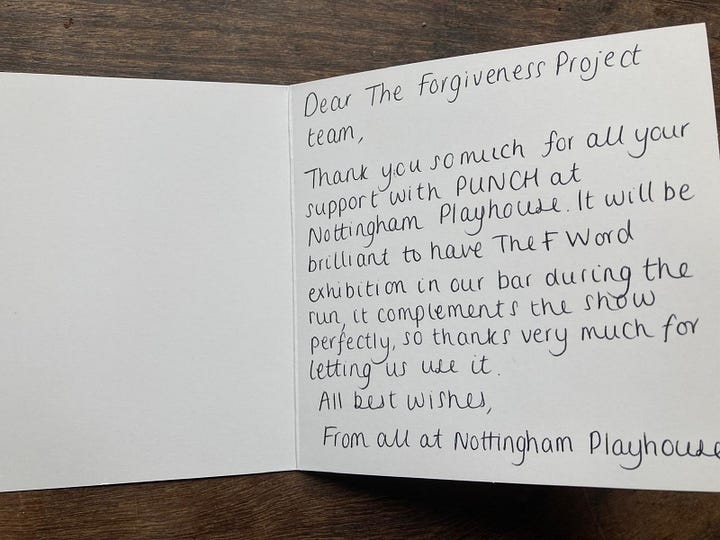 Dear The Forgiveness Project
team,
Thank you so much for all your
support with PUNCH at
Nottingham Playhouse. It will be
brilliant to have The F Word
exhibition in our bar during the
run, it complements the show
perfectly, so thanks very much for
letting us use it.
All best wishes,
From all at Nottingham Playhouse